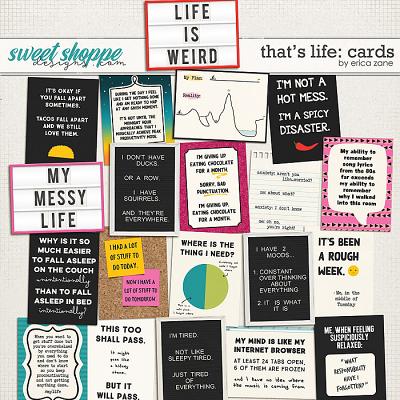 LIFE
IS
WEIRD
sweet shoppe
designs.com
that's life: cards
by erica zane
IT'S OKAY IF
YOU FALL APART
SOMETIMES.
TACOS FALL APART
AND WE STILL
LOVE THEM.
DURING THE DAY I FEEL
LIKE I GET NOTHING DONE
AND AM READY TO NAP
AT ANY GIVEN MOMENT.
IT'S NOT UNTIL THE
MIDNIGHT HOUR
APPROACHES THAT I
MIRACULOUSLY ACHIEVE PEAK
PRODUCTIVITY MODE.
My Plan:
Reality:
I'M NOT A
HOT MESS.
I'M A SPICY
DISASTER.
MY
MESSY
LIFE
I DON'T HAVE
DUCKS.
OR A ROW.
I HAVE
SQUIRRELS.
AND THEY'RE
EVERYWHERE.
I'M GIVING UP
EATING CHOCOLATE
FOR A MONTH.
SORRY, BAD
PUNCTUATION.
I'M GIVING UP.
EATING CHOCOLATE
FOR A MONTH.
anxiety: aren't you
like...worried?
me: about what?
anxiety: i don't know
me: oh no,
you're right
My ability to
remember
song lyrics
from the 80s
far exceeds
my ability to
remember
why I walked
into this room
WHY IS IT SO
MUCH EASIER
TO FALL ASLEEP
ON THE COUCH
unintentionally
THAN TO FALL
ASLEEP IN BED
intentionally?
I HAD A LOT
OF STUFF TO
DO TODAY.
NOW I HAVE A
LOT OF STUFF TO
DO TOMORROW.
WHERE IS THE
THING I NEED?
I HAVE 2
MOODS...
1. CONSTANT
OVER THINKING
ABOUT
EVERYTHING
2. IT IS WHAT
IT IS
IT'S BEEN
A ROUGH
WEEK.
- Me, in the
middle of
Tuesday
When you want to
get stuff done but
you're overwhelmed
by everything
you need to do
and don't know
where to start
so you keep
procrastinating
and not getting
anything done.
#mylife
THIS TOO
SHALL PASS.
It might
pass like a
kidney stone.
BUT IT
WILL PASS.
I'M TIRED.
NOT LIKE
SLEEPY TIRED.
JUST TIRED
OF
EVERYTHING.
MY MIND IS LIKE MY
INTERNET BROWSER
AT LEAST 24 TABS OPEN,
6 OF THEM ARE FROZEN
and I have no idea where
the music is coming from.
ME, WHEN FEELING
SUSPICIOUSLY
RELAXED:
"WHAT
RESPONSIBILITY
HAVE I
FORGOTTEN?"